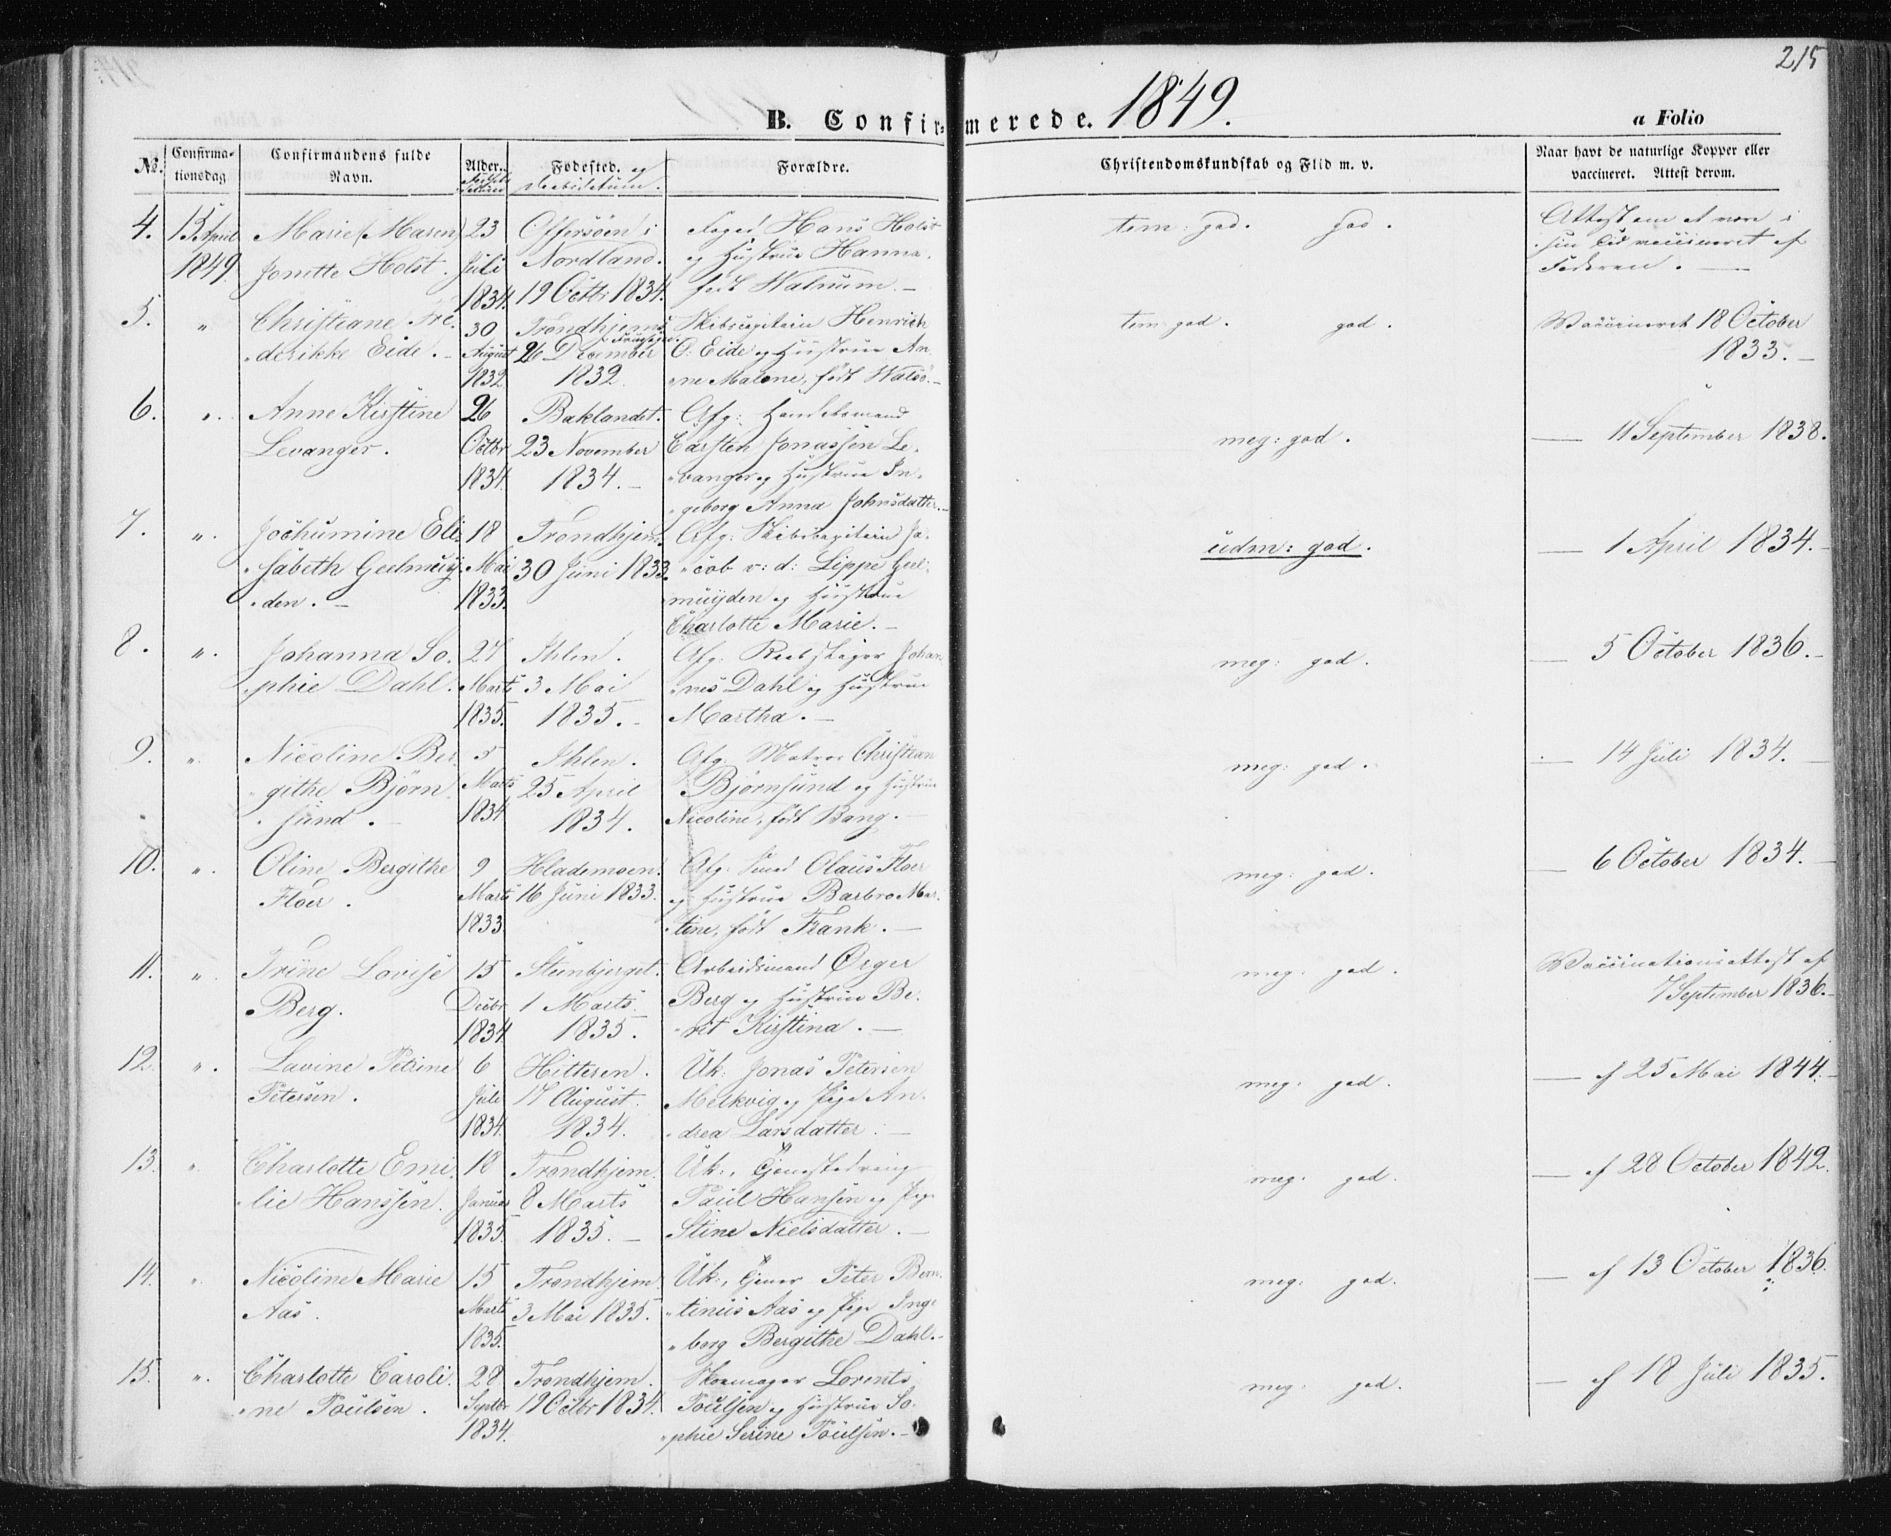 215
B. Confirmerede. 1849.
a Folio
No. Confirmationsdag Confirmandens fulde Navn. Alder. Fødested. og Daabsdatum. Forældre. Christendomskundskab og Flid m. v. Naar havt de naturlige Kopper eller vaccineret. Attest derom.
4. 15 April Marie (Maren) 23 Offersöen i Foged Hans Holst tem: god. god. Attest om at være i
1849. Jonette Holst. Juli Nordland. og Hustrue Hanna, sin Tid vaccineret af
1834. 19 Octbr 1834. født Walnum. – Faderen. –
5. " Christiane Fre- 30 Trondhjems Skibscapitain Henrich tem: god. god. Vaccineret 18 October
derikke Eide. – August 26 December O: Eide og Hustrue An- 1833. –
1832. 1832. ne Malene, født Walsö. –
6. " Anne Kirstine 26 Baklandet. Afg: Handelsmand
Levanger. Octbr 23 November Carsten Jonassen Le- meg: god. — 11 September 1838.
1834. 1834. – vanger og Hustrue In-
geborg Anna Johnsdatter. –
7. " Jochumine Eli- 18 Trondhjem. Afg: Skibscapitain Ja- udm: god. — 1 April 1834. –
sabeth Geelmuy- Mai 30 Juni 1833. cob v: d: Lippe Geel-
den. – 1833. muyden og Hustrue
Charlotte Marie. –
8. " Johanna So- 27 Ihlen. Afg: Rebslager Johan- meg: god. — 5 October 1836. –
phie Dahl. Marts 3 Mai nes Dahl og Hustrue
1835. 1835. – Martha. –
9. " Nicoline Ber- 5 Ihlen. Afg: Matros Christian meg: god. — 14 Juli 1834. –
githe Björn- Marts 25 April Björnsund og Hustrue
sund. – 1834 1834. Nicoline, født Bang. –
10. " Oline Bergithe 9 Hlademoen. Afg: Smed Olaus Floer meg: god. — 6 October 1834. –
Floer. Marts 16 Juni 1833. og Hustrue Barbro Mar-
1833 tine, født Frank. –
11. " Trine Lovise 15 Steinbjerget. Arbeidsmand Örger meg: god. Vaccinationsattest af
Berg. Decbr 1 Marts Berg og Hustrue Be- 7 September 1836. –
1834 1835. rit Kirstina. –
12. " Lavine Petrine 6 Hitteren. Uk: Jonas Petersen meg: god. — af 25 Mai 1844. –
Petersen. Juli 17 August Melkvig og Pige An-
1834. 1834. drea Larsdatter. –
13. " Charlotte Emi- 18 Trondhjem. Uk:, Tjenestedreng meg: god. — af 28 October 1842.
lie Hanssen. Januar 8 Marts Paul Hansen og Pige
1835. 1835. – Stine Nielsdatter. –
14. " Nicoline Marie 15 Trondhjem Uk:, Tjener Peter Bern- meg: god. — af 13 October 1836.
Aas. Marts 3 Mai 1835. tinus Aas og Pige Inge-
1835. borg Bergithe Dahl. –
15. " Charlotte Caroli- 28 Trondhjem. Skomager Lorents meg: god. — af 18 Juli 1835.
ne Poulsen. Septbr 19 Octbr 1834. Poulsen og Hustrue So-
1834. phie Serine Poulsen. –